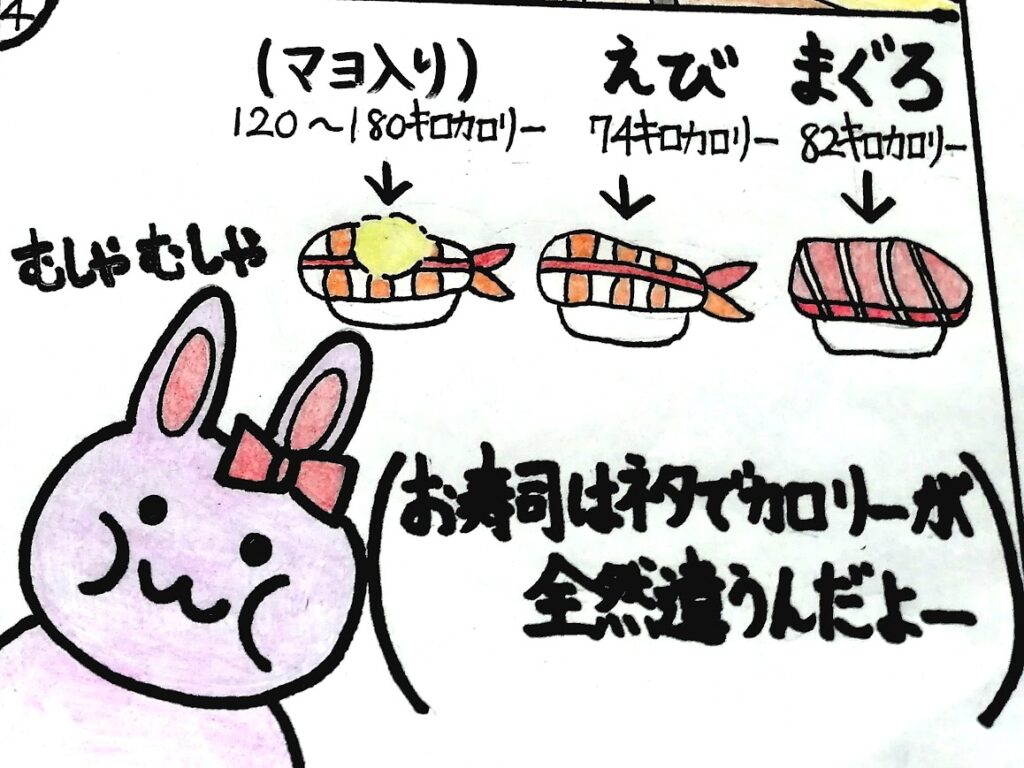 4
(マヨ入り)
120〜180キロカロリー
えび
74キロカロリー
まぐろ
82キロカロリー
むしゃむしゃ
お寿司はネタでカロリーが
全然違うんだよー